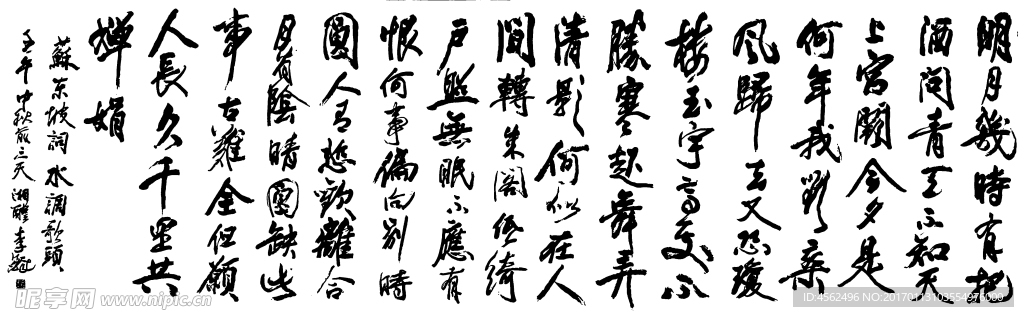 明月幾時有把
酒問青天不知天
上宮闕今夕是
何年我欲乘
風歸去又恐瓊
樓玉宇高處不
勝寒起舞弄
清影何似在人
間轉朱閣低綺
戶照無眠不應有
恨何事偏向別時
圓人有悲歡離合
月有陰晴圓缺此
事古難全但願
人長久千里共
嬋娟
蘇東坡詞水調歌頭
壬午中秋前三天湘醴李
昵享网 www.nipic.cn
ID:4562496 NO:20170113103554976000